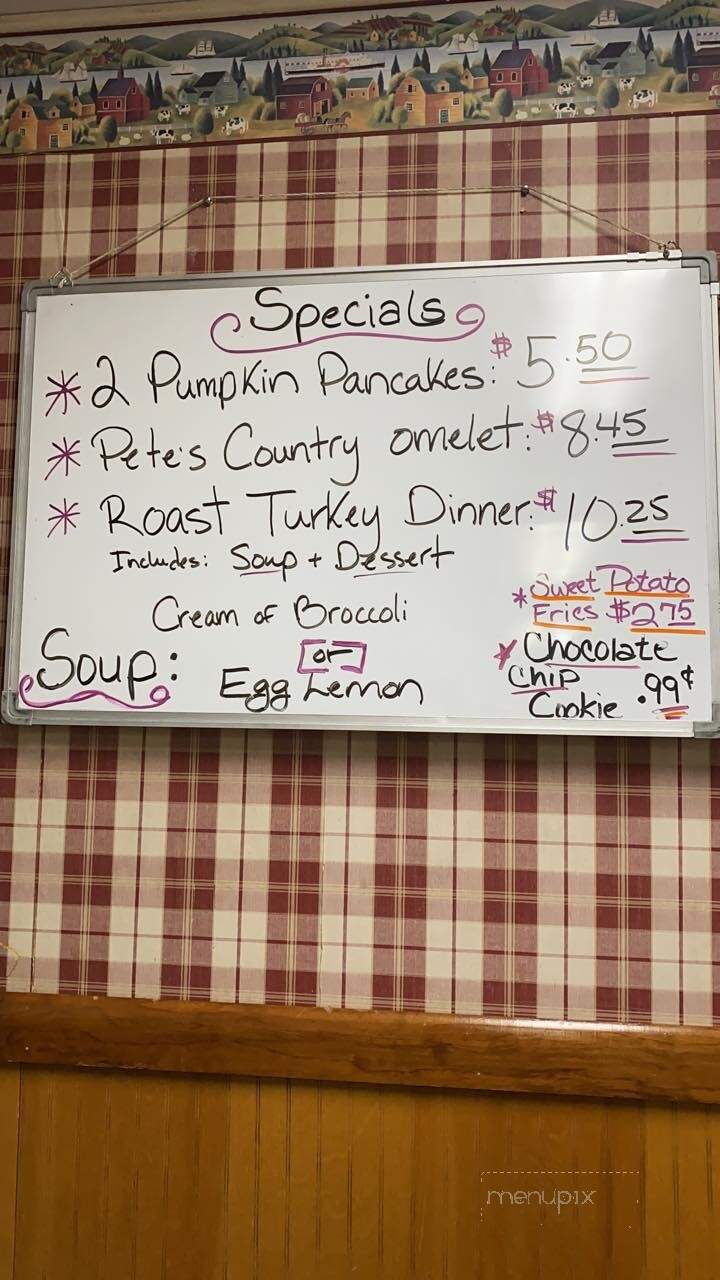 Specials
* 2 Pumpkin Pancakes: $5.50
* Pete's Country omelet: $8.45
* Roast Turkey Dinner: $10.25
Includes: Soup + Dessert
Cream of Broccoli
Soup: or
Egg Lemon
* Sweet Potato
Fries $2.75
* Chocolate
Chip
Cookie .99¢
menupix